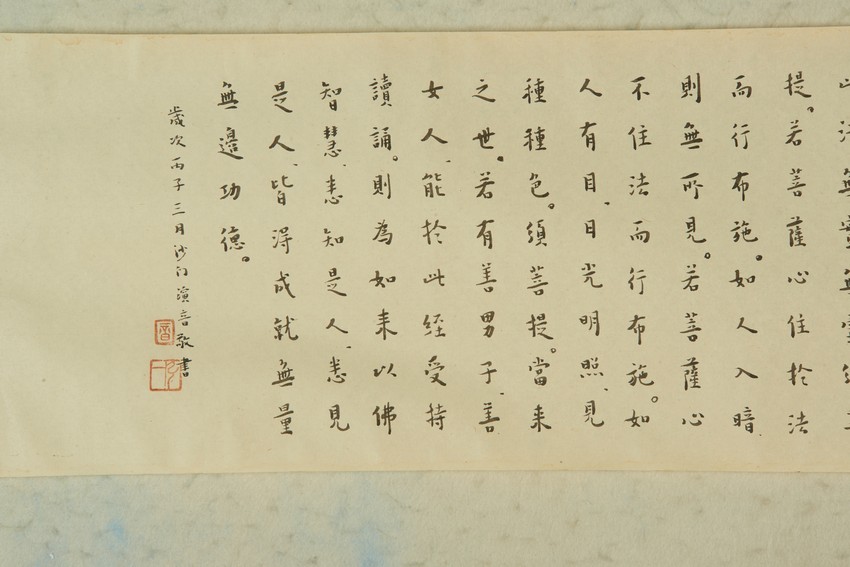 提。若菩薩心住於法
而行布施。如人入暗、
則無所見。若菩薩心
不住法而行布施。如
人有目、日光明照、見
種種色。須菩提。當來
之世。若有善男子、善
女人、能於此經受持
讀誦。則為如來以佛
智慧、悉知是人、悉見
是人、皆得成就無量
無邊功德。
歲次丙子三月沙門演音敬書
音
弘一